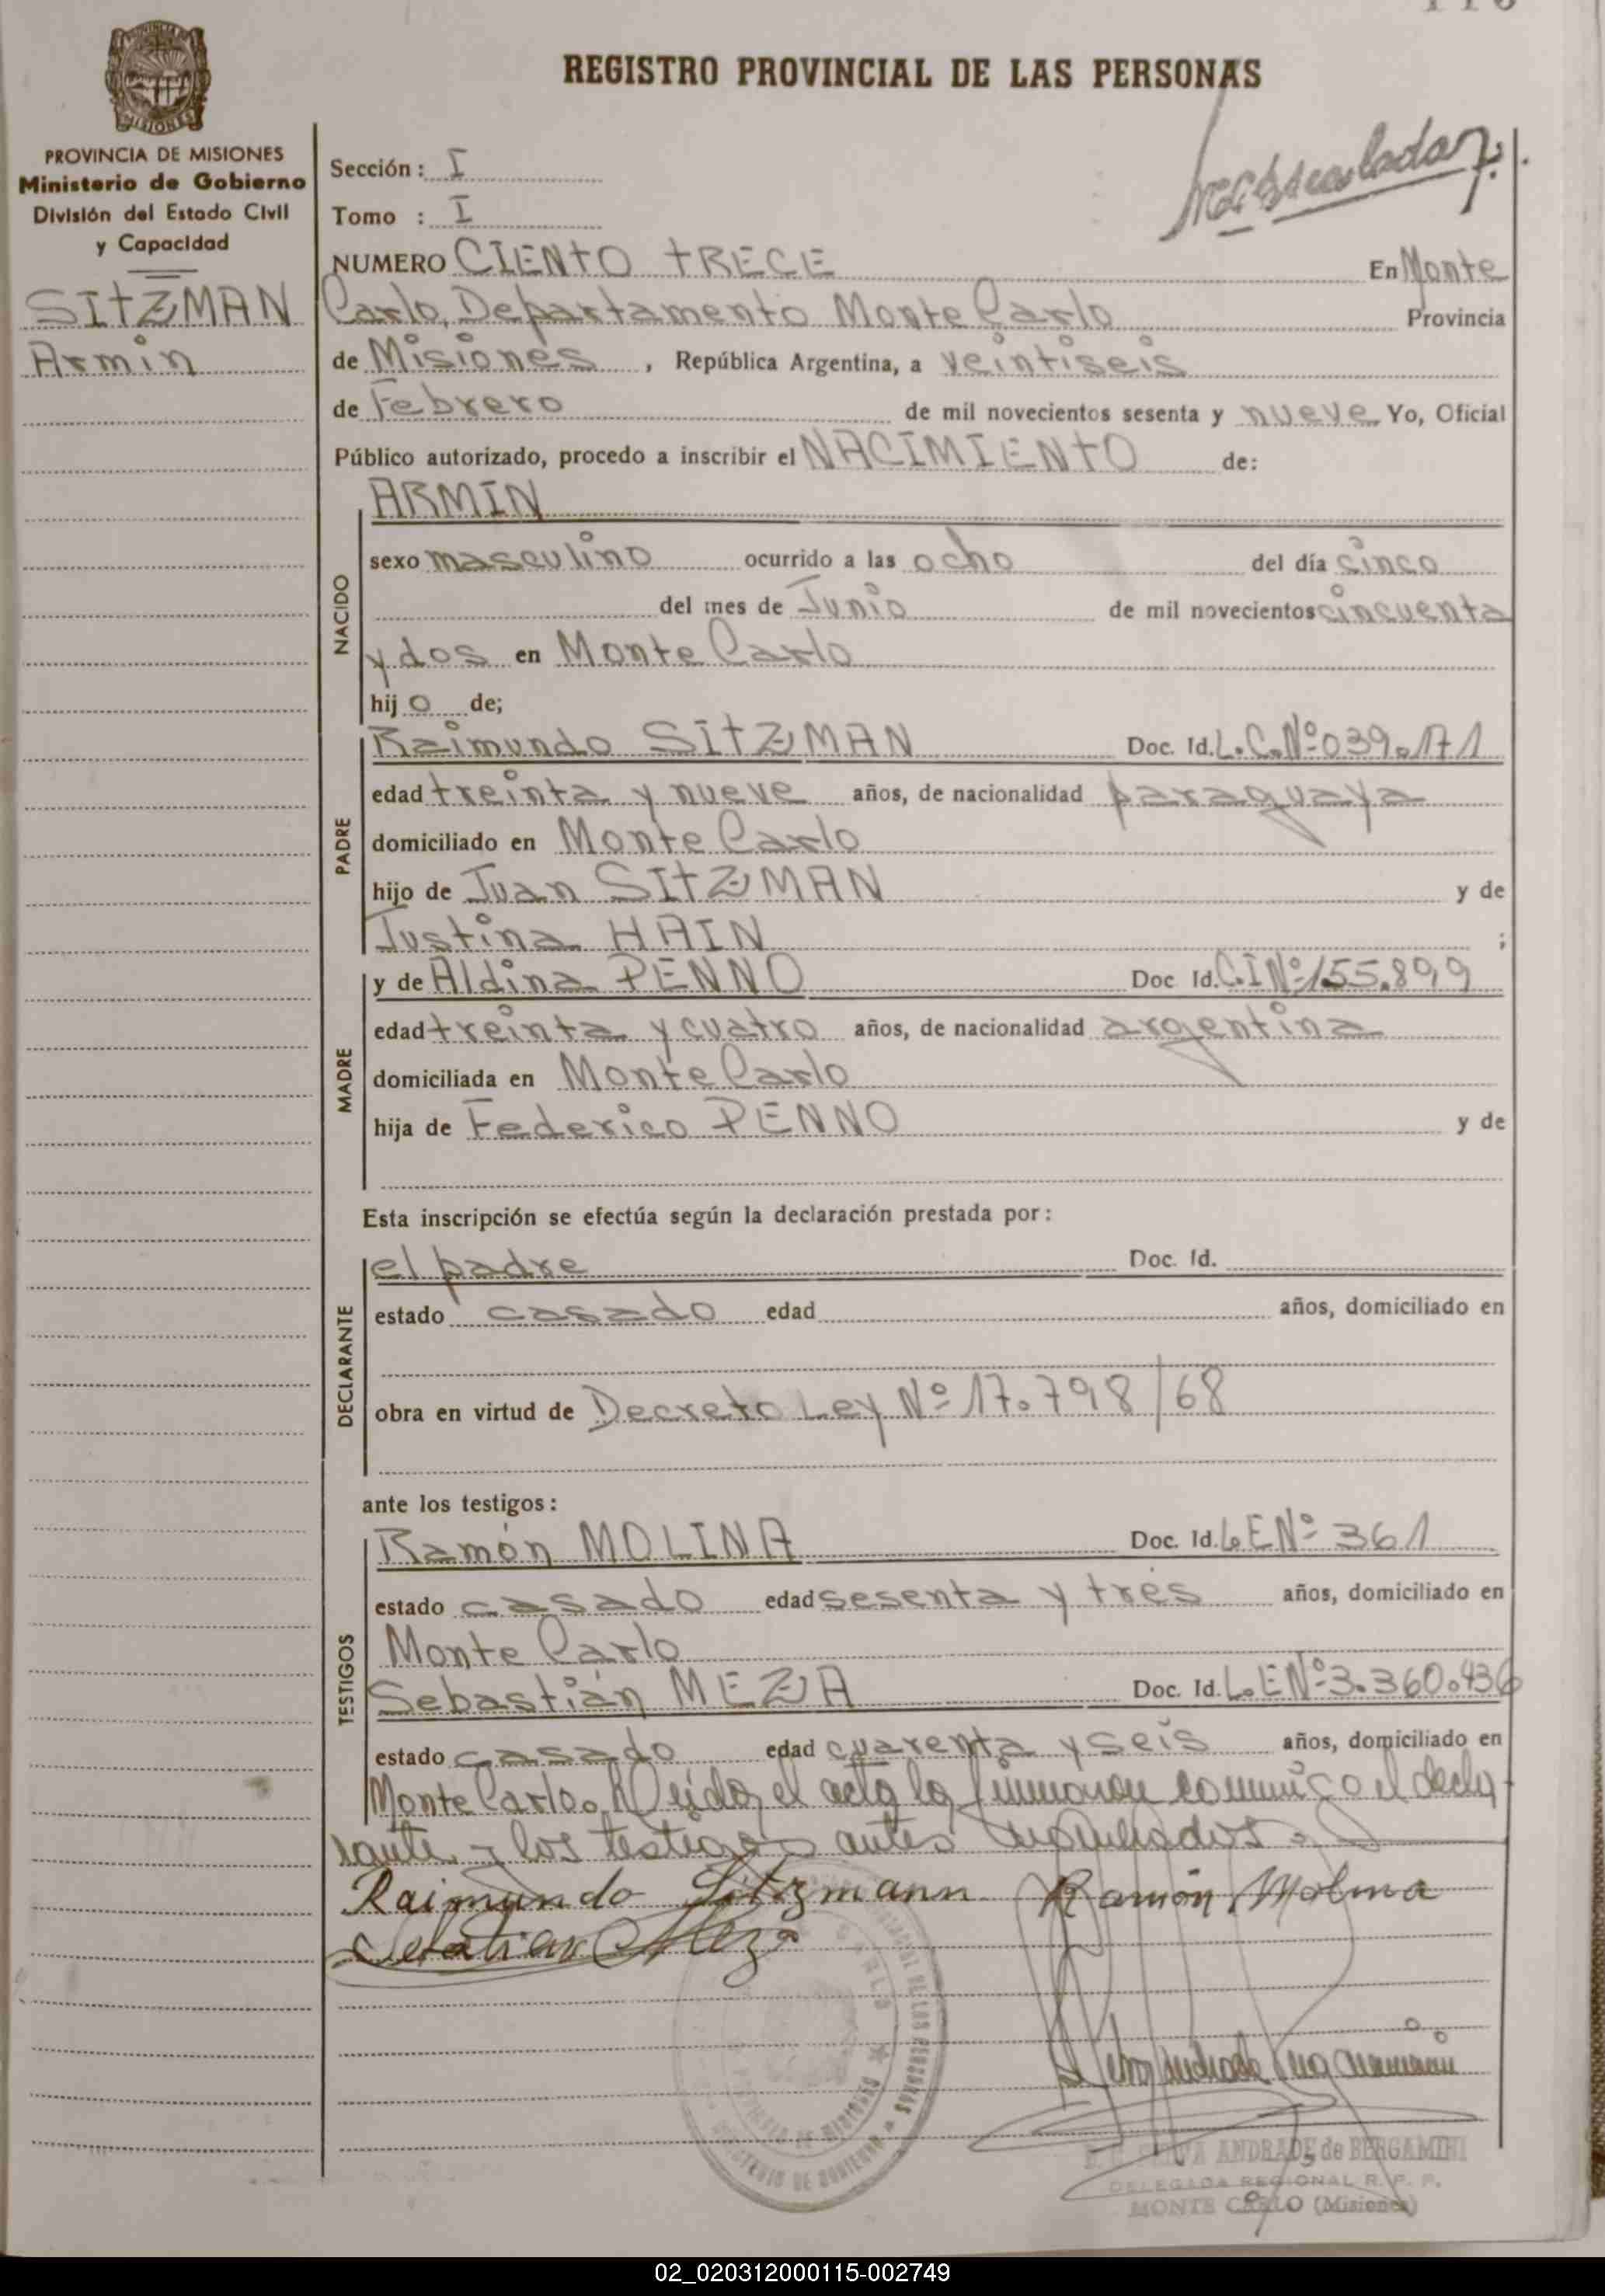 REGISTRO PROVINCIAL DE LAS PERSONAS
MISIONES
PROVINCIA DE MISIONES
Ministerio de Gobierno
División del Estado Civil
y Capacidad
SITZMAN
Armin
Sección: I
Tomo : I
NUMERO CIENTO TRECE En Monte
Carlo, Departamento Monte Carlo Provincia
de Misiones , República Argentina, a veintiseis
de Febrero de mil novecientos sesenta y nueve Yo, Oficial
Público autorizado, procedo a inscribir el NACIMIENTO de:
NACIDO
ARMIN
sexo masculino ocurrido a las ocho del día cinco
del mes de Junio de mil novecientos cincuenta
y dos en Monte Carlo
hijo de;
PADRE
Raimundo SITZMAN Doc. Id. L.C.Nº 039.171
edad treinta y nueve años, de nacionalidad paraguaya
domiciliado en Monte Carlo
hijo de Juan SITZMAN y de
Justina HAIN ;
MADRE
y de Aldina PENNO Doc Id. C.I Nº 155.899
edad treinta y cuatro años, de nacionalidad argentina
domiciliada en Monte Carlo
hija de Federico PENNO y de
Esta inscripción se efectúa según la declaración prestada por:
DECLARANTE
el padre Doc. Id.
estado casado edad años, domiciliado en
obra en virtud de Decreto Ley Nº 17.798/68
ante los testigos:
TESTIGOS
Ramón MOLINA Doc. Id. L.E Nº 361
estado casado edad sesenta y tres años, domiciliado en
Monte Carlo
Sebastián MEZA Doc. Id. L.E Nº 3.360.436
estado casado edad cuarenta y seis años, domiciliado en
Monte Carlo. Leída el acta la firmaron conmigo el decla
rante y los testigos antes
Raimundo Sitzmann Ramón Molina
Sebatian Meza
ANDRADE de BERGAMINI
DELEGADA REGIONAL R. P. P.
MONTE CARLO (Misiones)
02_020312000115-002749